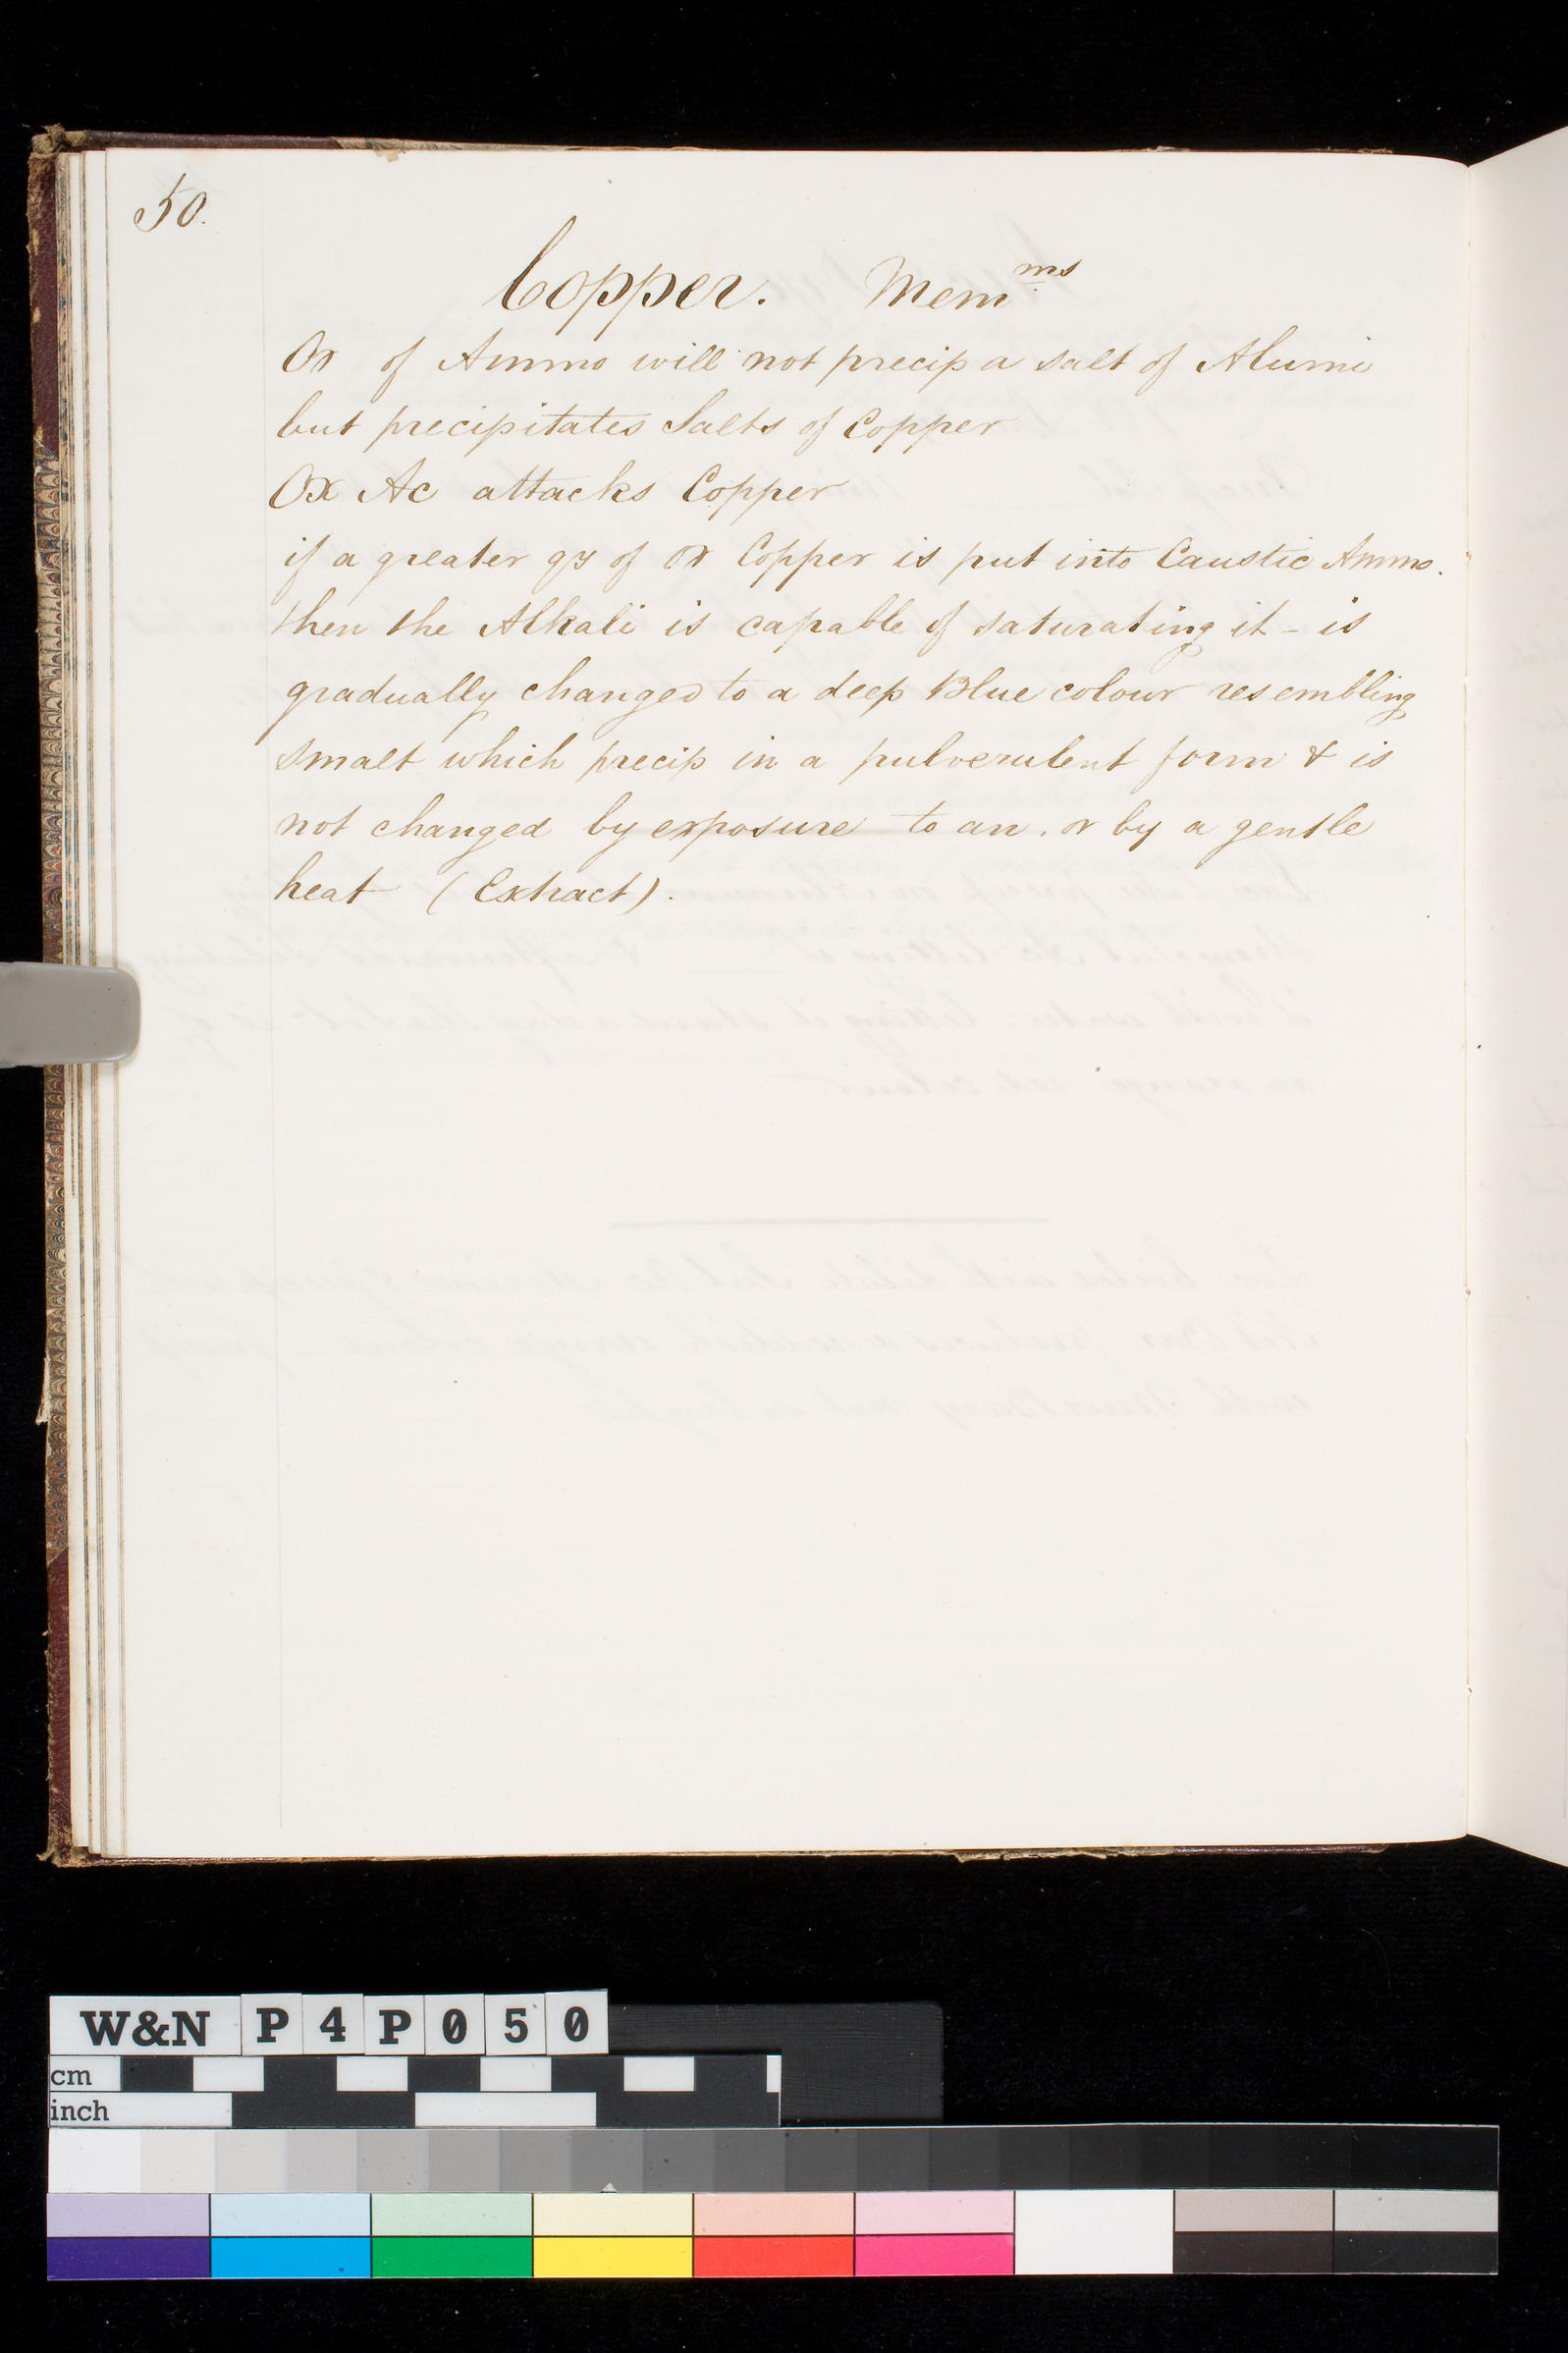 50.
Copper. Mem.ms
Ox of Ammo will not precip a salt of Alumi
but precipitates Salts of Copper
Ox Ac attacks Copper
if a greater qy of Ox Copper is put into Caustic Ammo.
then the Alkali is capable of saturating it - is
gradually changed to a deep Blue colour resembling
smalt which precip in a pulverulent form & is
not changed by exposure to air. or by a gentle
heat (Extract).
W&N P4P050
cm
inch